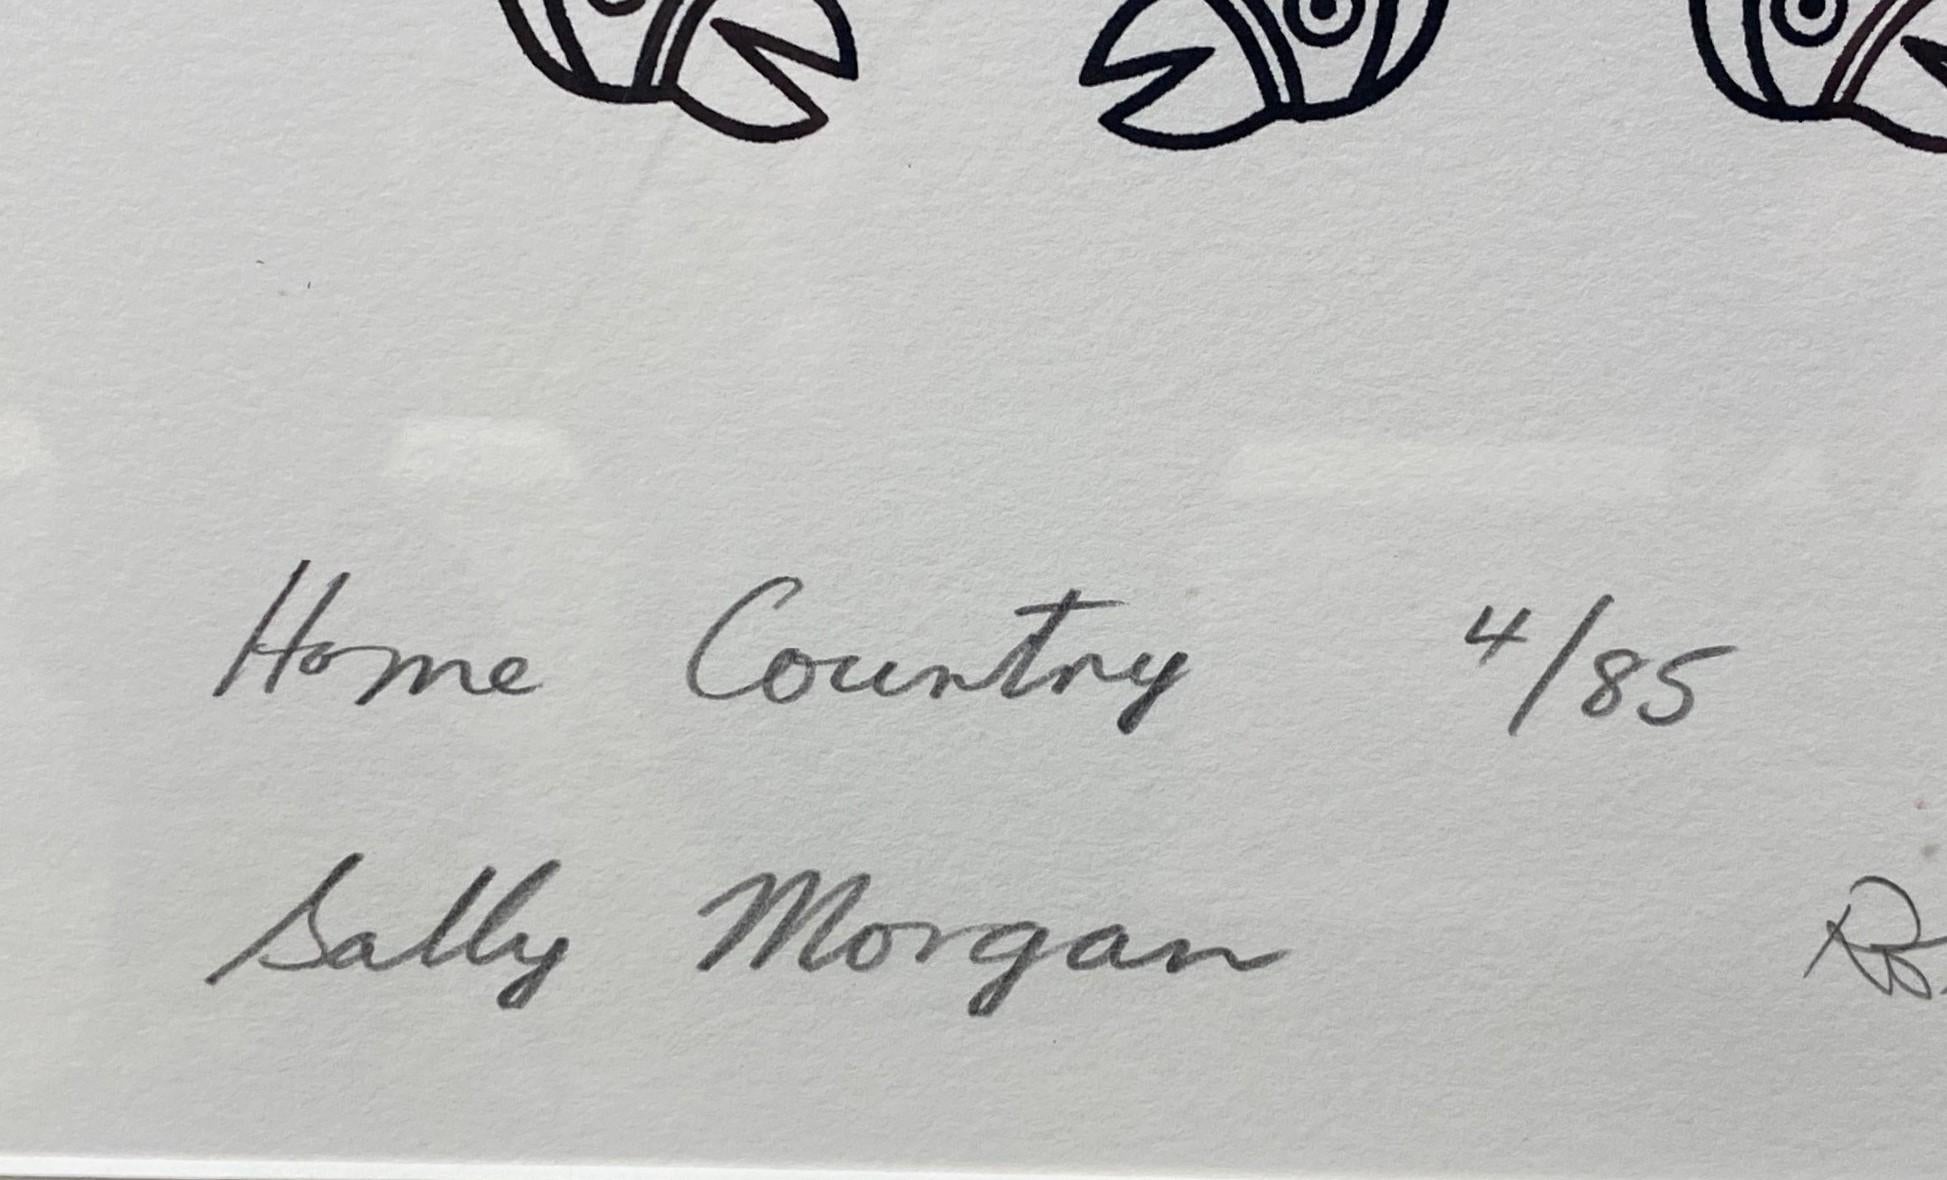 Home Country 4/85
Sally Morgan